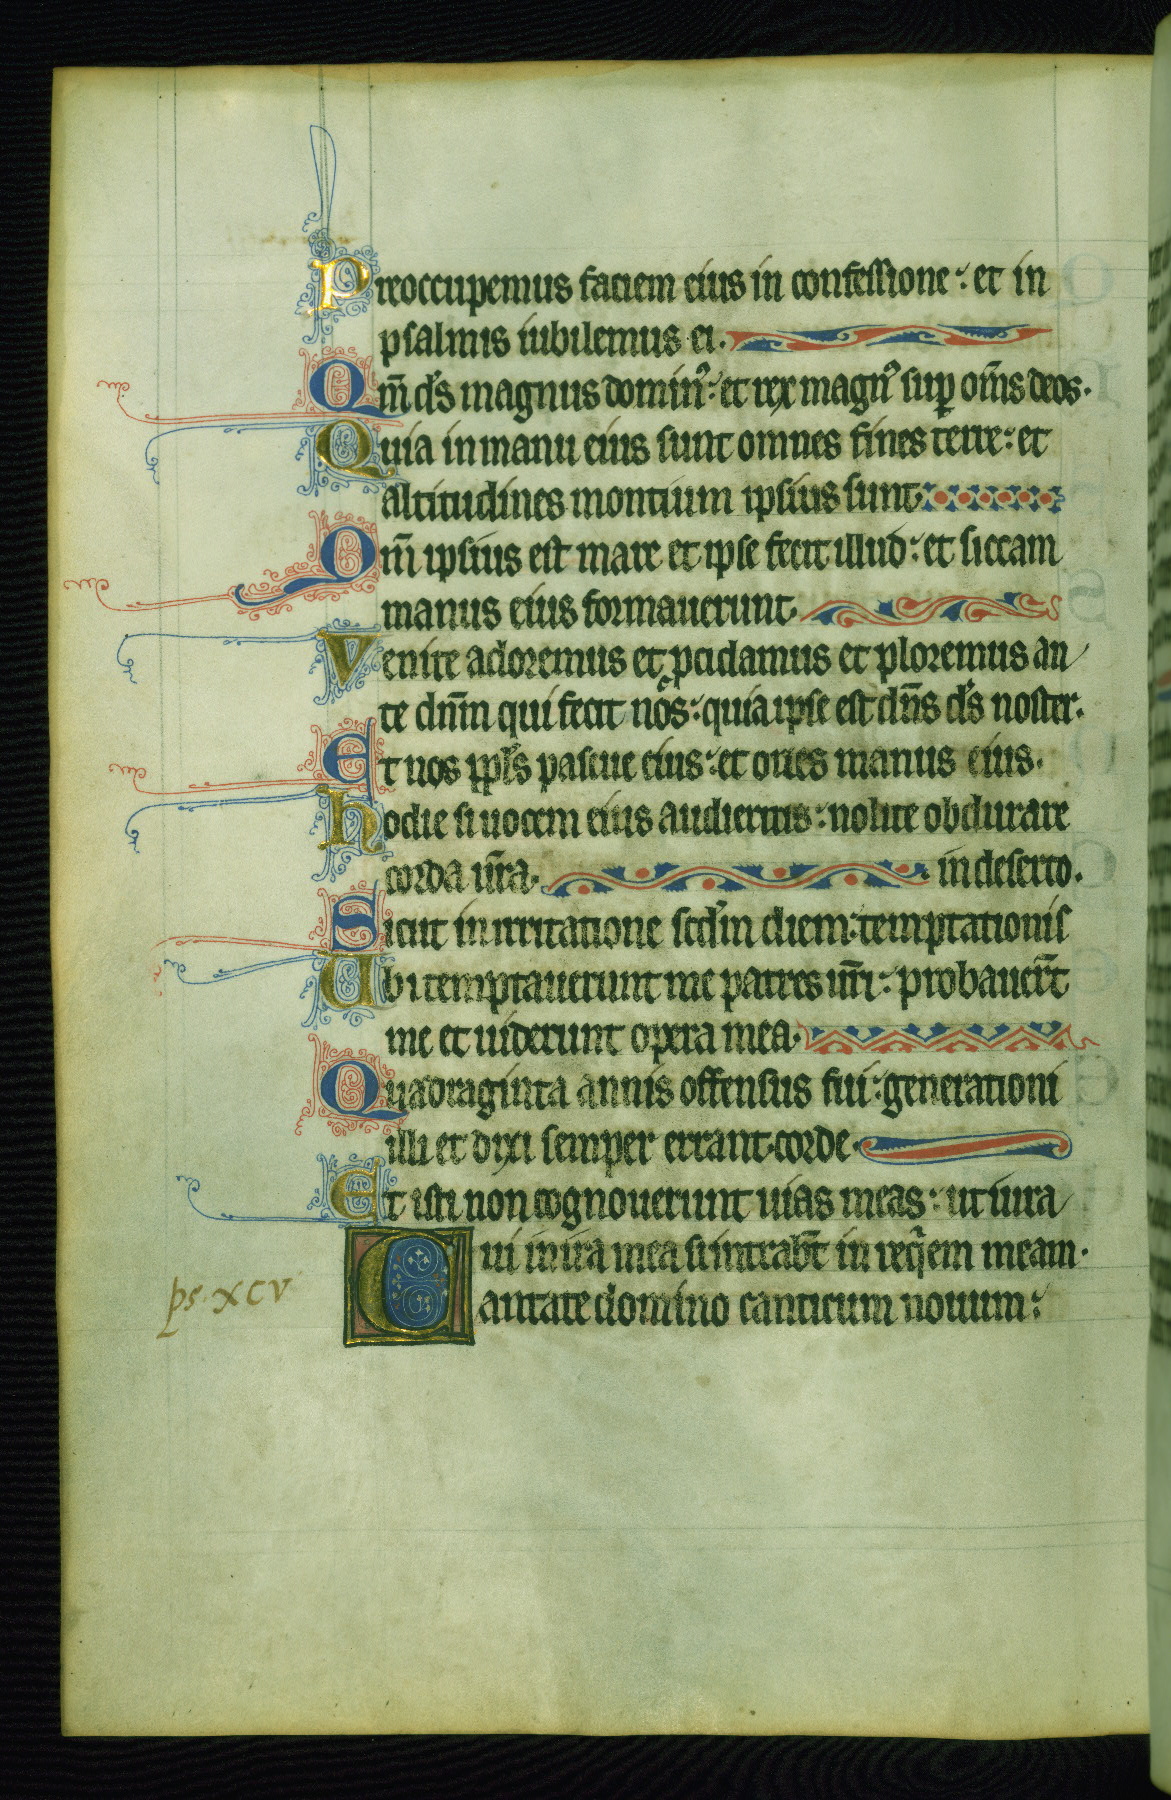 Preoccupemus faciem eius in confessione: et in
psalmis iubilemus ei.
Qm̄ ds̄ magnus domin᷒: et rex magn᷒ sup om̄s deos.
Quia in manu eius sunt omnes fines terre: et
altitudines montium ipsius sunt.
Qm̄ ipsius est mare et ipse fecit illud: et siccam
manus eius formauerunt.
Venite adoremus et pcidamus et ploremus an
te dnm̄ qui fecit nos: quia ipse est dn̄s ds̄ noster.
Et nos ppls̄ pascue eius: et oues manus eius.
Hodie si uocem eius audieritis: nolite obdurare
corda ur̄a. in deserto.
Sicut in irritatione scdm̄ diem: temptationis
Ubi temptauerunt me patres ur̄i: probauerт̄
me et uiderunt opera mea.
Quadraginta annis offensus fui: generationi
illi et dixi semper errant corde.
Et isti non cognouerunt uias meas: ut iura
ui in ira mea si intrabt̄ in req̄em meam.
ps. XCV
Cantate domino canticum nouum: